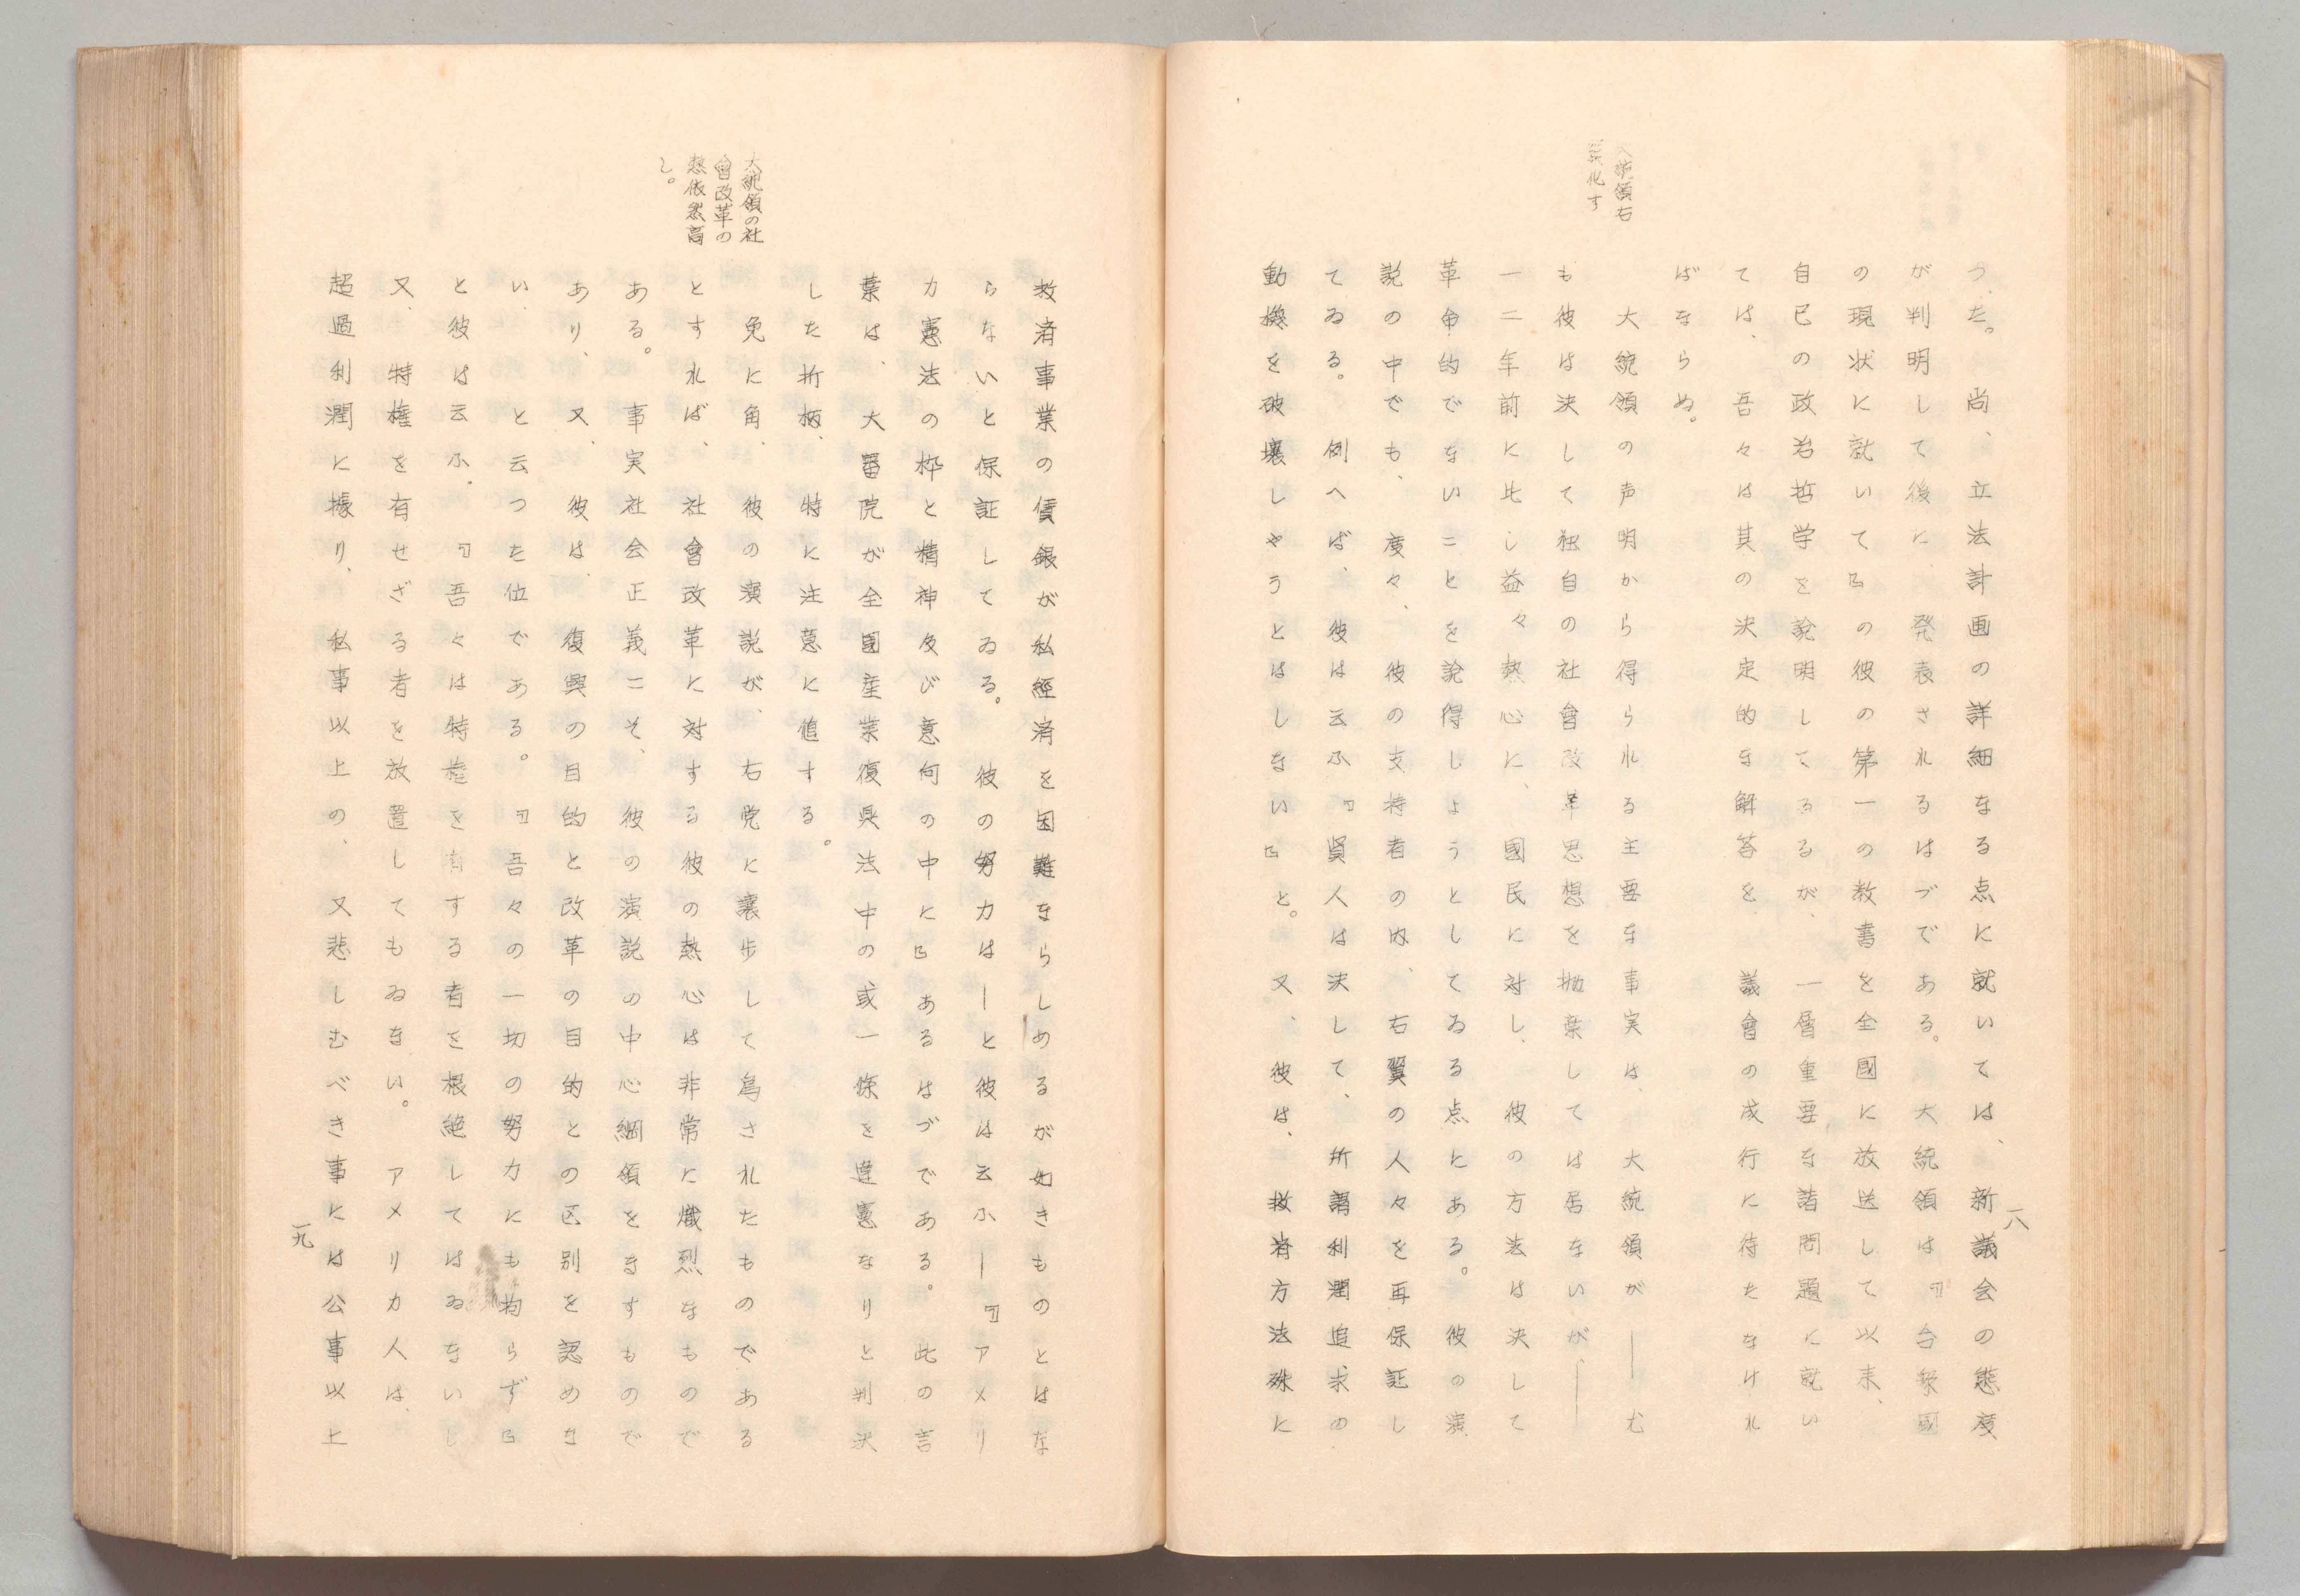 つた。尚、立法計画の詳細なる点に就いては、新議会の態度
が判明して後に、発表されるはづである。大統領は『合衆國
の現状に就いて』の彼の第一の教書を全國に放送して以来、
自己の政治哲学を說明してゐるが、一層重要な諸問題に就い
ては、吾々は其の決定的な解答を、議會の成行に待たなけれ
ばならぬ。
大統領右
翼化す
大統領の声明から得られる主要な事実は、大統領が——む
も彼は決して独自の社會改革思想を拋棄しては居ないが、——
一二年前に比し益々熱心に、國民に対し、彼の方法は決して
革命的でないことを說得しようとしてゐる点にある。彼の演
説の中でも、度々、彼の支持者の内、右翼の人々を再保証し
てゐる。例へば、彼は云ふ『賢人は決して、所謂利潤追求の
動機を破壊しやうとはしない』と。又、彼は、救済方法殊に
一八
救済事業の賃銀が私經済を困難ならしめるが如きものとはな
らないと保証してゐる。彼の努力は—と彼は云ふ—『アメリ
カ憲法の枠と精神及び意向の中に』あるはづである。此の言
葉は、大審院が全國産業復興法中の或一條を違憲なりと判決
した折柄、特に注意に値する。
大統領の社
會改革の
熱依然高
し。
兔に角、彼の演説が、右党に譲歩して為されたものである
とすれば、社會改革に対する彼の熱心は非常に熾烈なもので
ある。事実社会正義こそ、彼の演説の中心綱領をなすもので
あり、又、彼は、復興の目的と改革の目的との区別を認めな
い、と云つた位である。『吾々の一切の努力にも拘らず』
と彼は云ふ。『吾々は特権を有する者を根絶してはゐないし
又、特権を有せざる者を放置してもゐない。アメリカ人は、
超過利潤に據り、私事以上の、又悲しむべき事には公事以上
一九